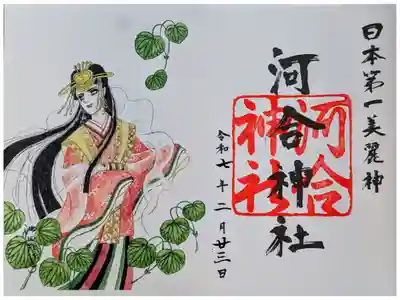 日本第一美麗神
河合神社
河合
神社
令和七年二月廿三日